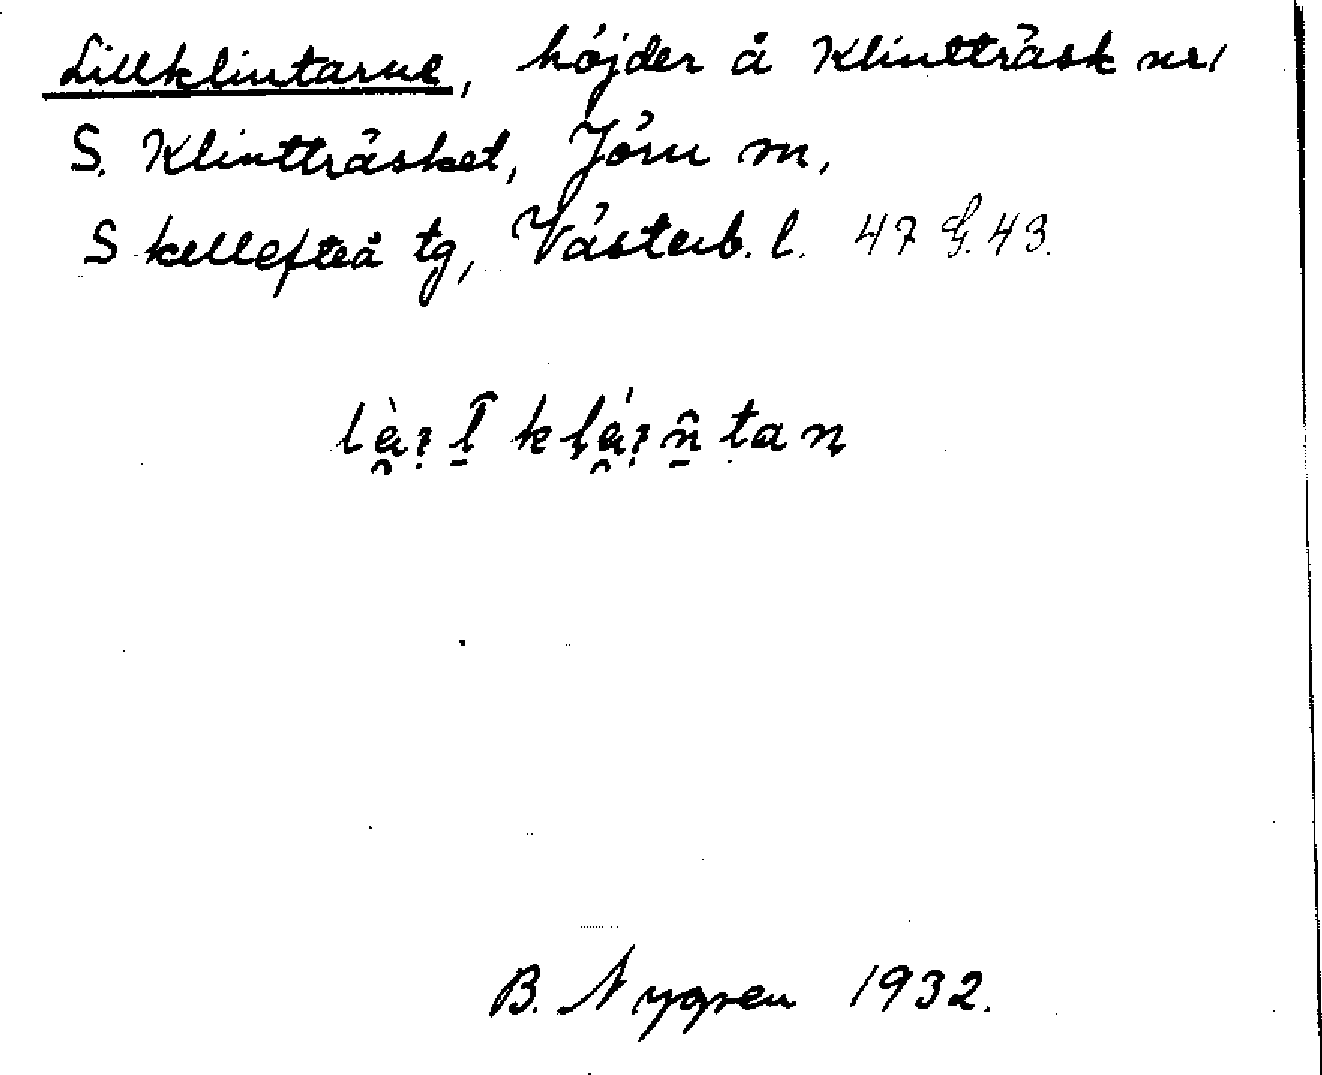 Lillklintarne, höjder å Klintträsk nr 1
S. Klintträsket, Jörn sn,
Skellefteå tg, Västerb. l. 47 G. 43.
B. Nygren 1932.